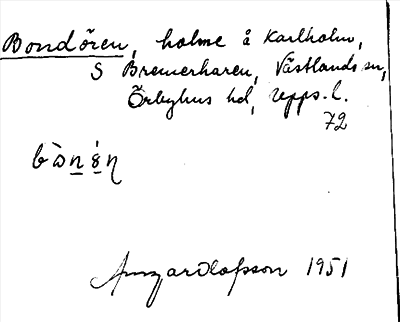 Bondören, holme å Karlholm,
S Bremerharen, Västlands sn,
Örbyhus hd, Upps. l.
72
Olofsson 1951